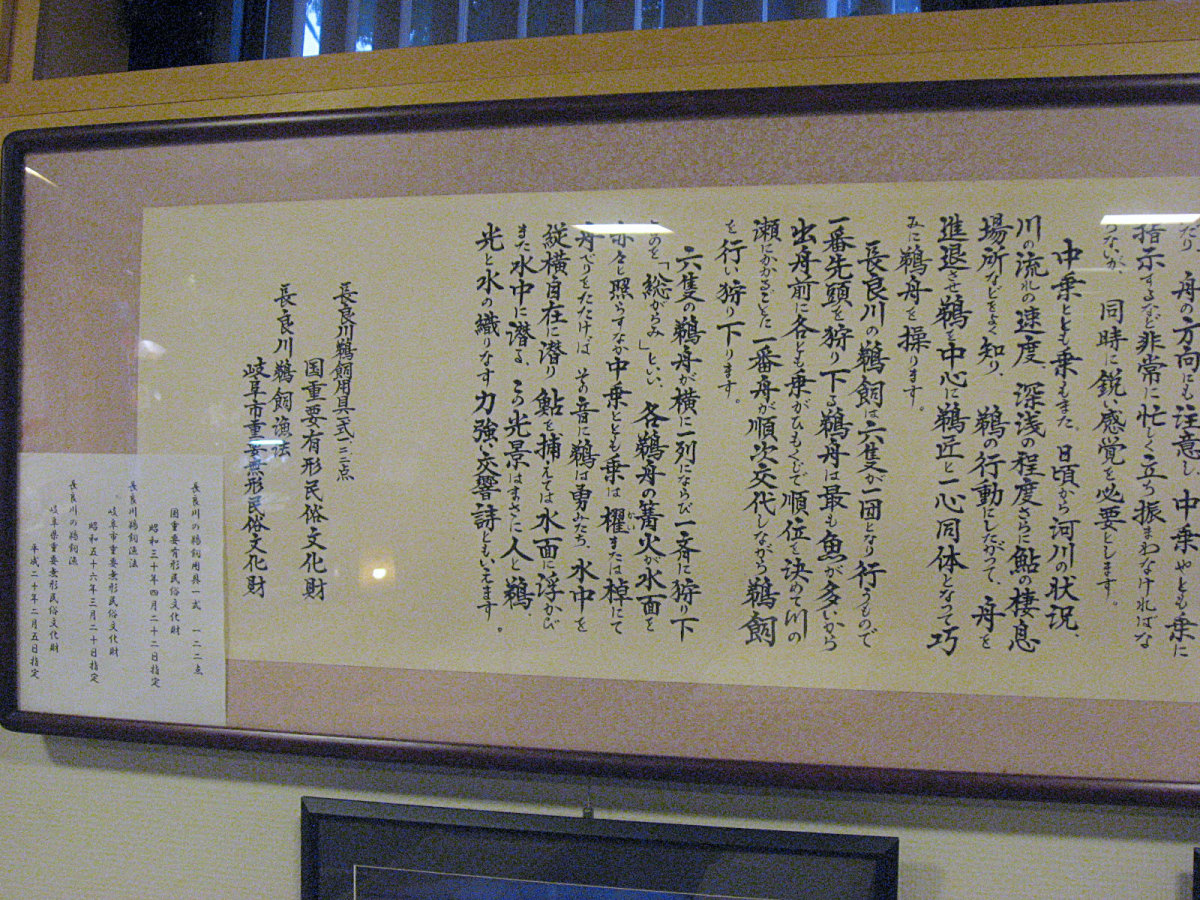 だり、舟の方向にも注意し、中乗やとも乗に
指示するなど非常に忙しく立ち振まわなければな
らないが、同時に鋭い感覚を必要とします。
中乗ととも乗もまた、日頃から河川の状況、
川の流れの速度、深浅の程度さらに鮎の棲息
場所などをよく知り、鵜の行動にしたがって、舟を
進退させ鵜を中心に鵜匠と一心同体となって巧
みに鵜舟を操ります。
長良川の鵜飼は六隻が一団となり行うもので
一番先頭を狩り下る鵜舟は最も魚が多いから
出舟前に各とも乗がひもくじで順位を決めて川の
瀬にかかるごとに一番舟が順次交代しながら鵜飼
を行い狩り下ります。
六隻の鵜舟が横に一列にならび一斉に狩り下
るのを「総がらみ」といい、各鵜舟の篝火が水面を
赤々と照らすなか中乗ととも乗は櫂または棹にて
舟べりをたたけば、その音に鵜は勇みたち、水中を
縦横自在に潜り鮎を捕えては水面に浮かび
また水中に潜る、この光景はまさに人と鵜
光と水の織りなす力強い交響詩ともいえます。
長良川鵜飼用具一式一二二点
国重要有形民俗文化財
長良川鵜飼漁法
岐阜市重要無形民俗文化財
長良川の鵜飼用具一式 一二二点
国重要有形民俗文化財
昭和三十年四月二十二日指定
長良川鵜飼漁法
岐阜市重要無形民俗文化財
昭和五十六年三月二十日指定
長良川の鵜飼漁法
岐阜県重要無形民俗文化財
平成二十年二月五日指定